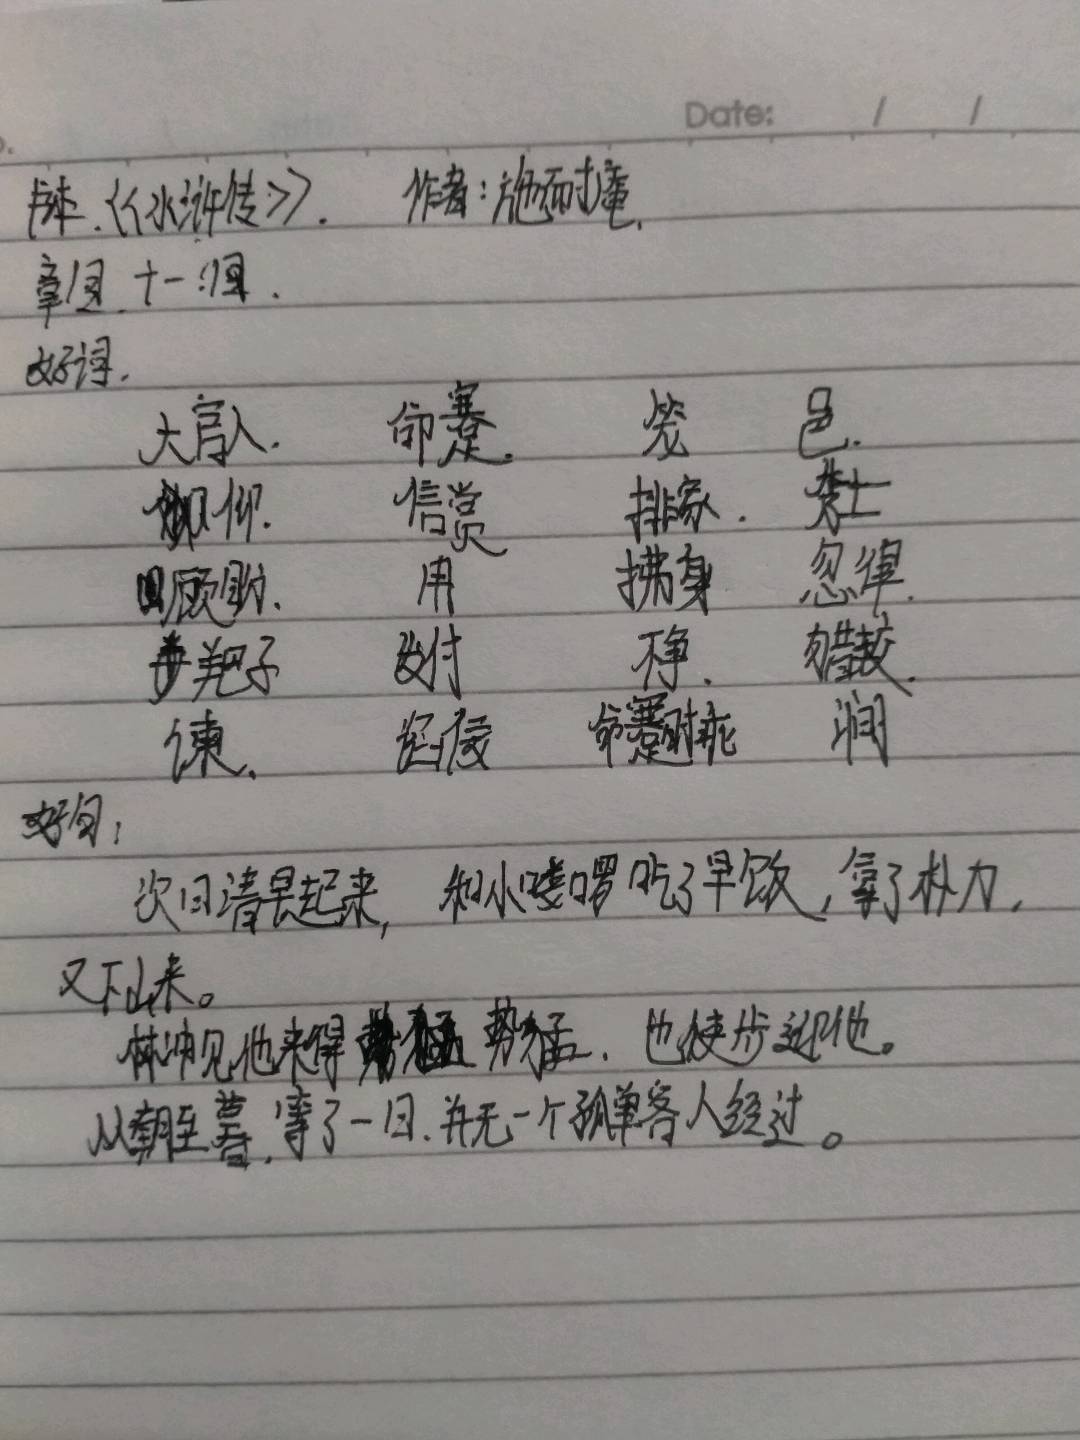 Date: / /
书本.《水浒传》. 作者:施耐庵.
章回.十一回.
好词.
大官人. 命蹇. 笼 邑.
仰. 信赏 排家. 禁士
顾盼. 用 拂身 忽律.
羊靶子 发付 不争. 猎较.
谏. 时乖 润
好句:
次日清早起来,和小喽啰吃了早饭,拿了朴刀,
又下山来。
林冲见他来得势猛,也使步迎他。
从朝至暮,等了一日.并无一个孤单客人经过。